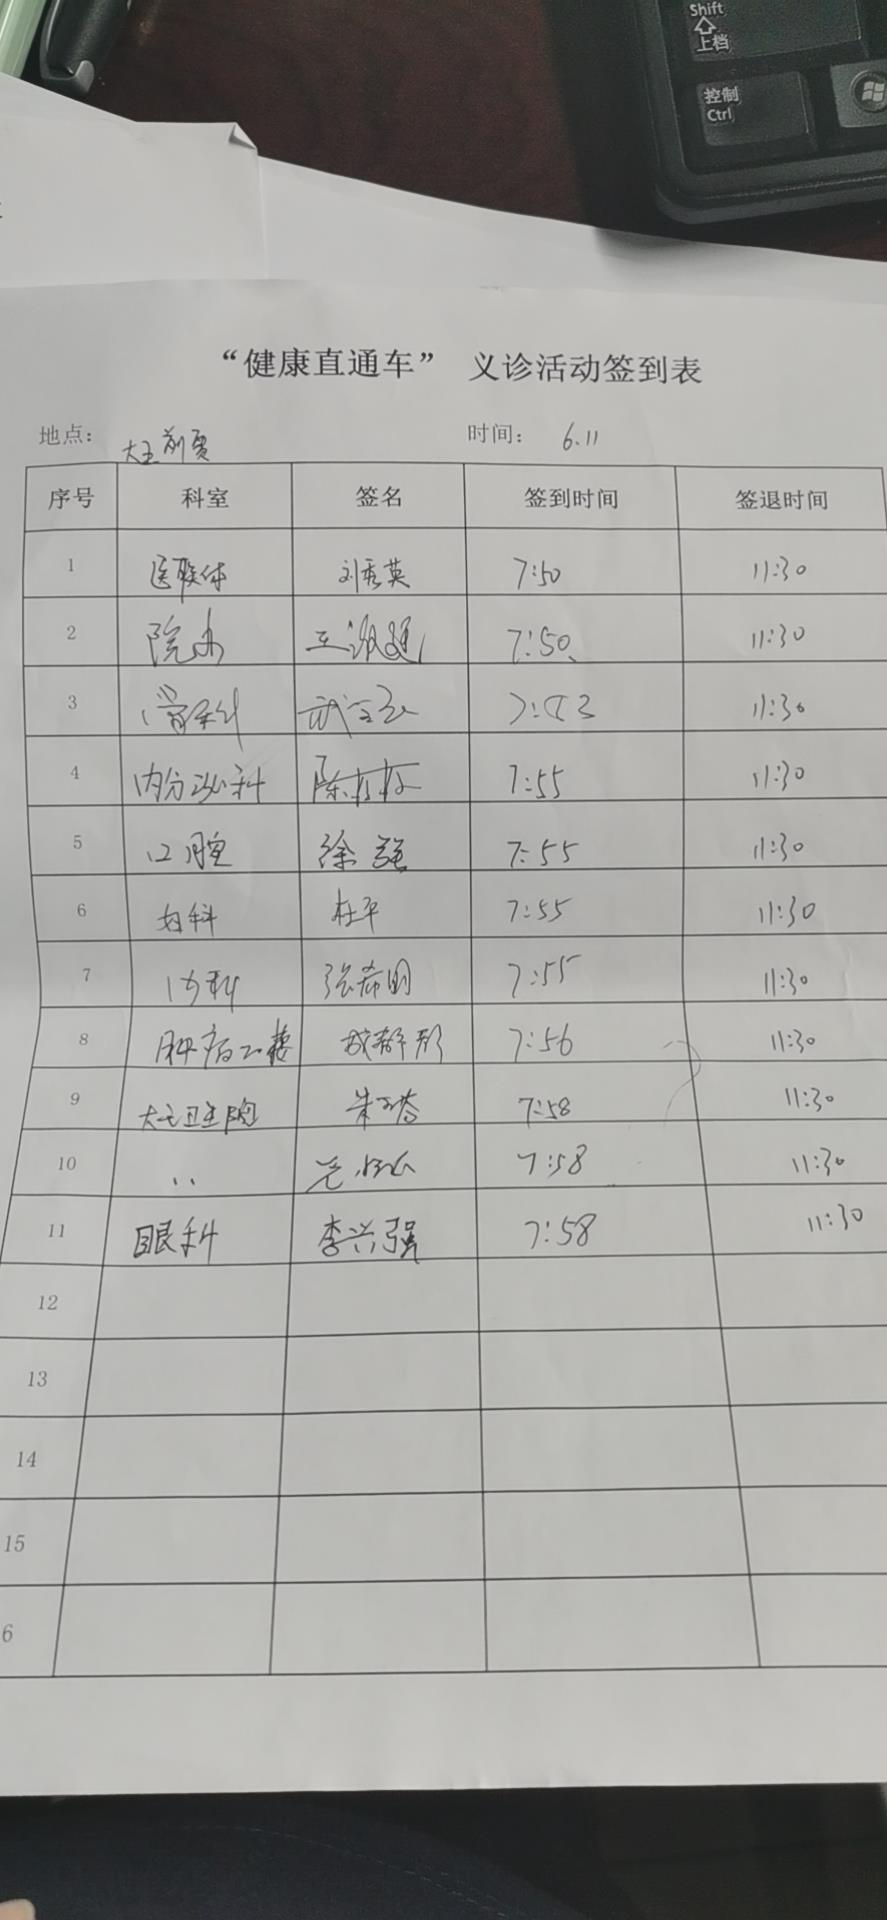 Shift
上档
控制
Ctrl
“健康直通车” 义诊活动签到表
地点: 大王前贾 时间: 6.11
序号 科室 签名 签到时间 签退时间
1 医联体 刘秀英 7:50 11:30
2 院办 7:50 11:30
3 7:53 11:30
4 内分泌科 7:55 11:30
5 口腔 徐强 7:55 11:30
6 妇科 杜平 7:55 11:30
7 内科 张希明 7:55 11:30
8 肿瘤二楼 7:56 11:30
9 大王卫生院 朱 7:58 11:30
10 〃 7:58 11:30
11 眼科 李兴强 7:58 11:30
12
13
14
15
6